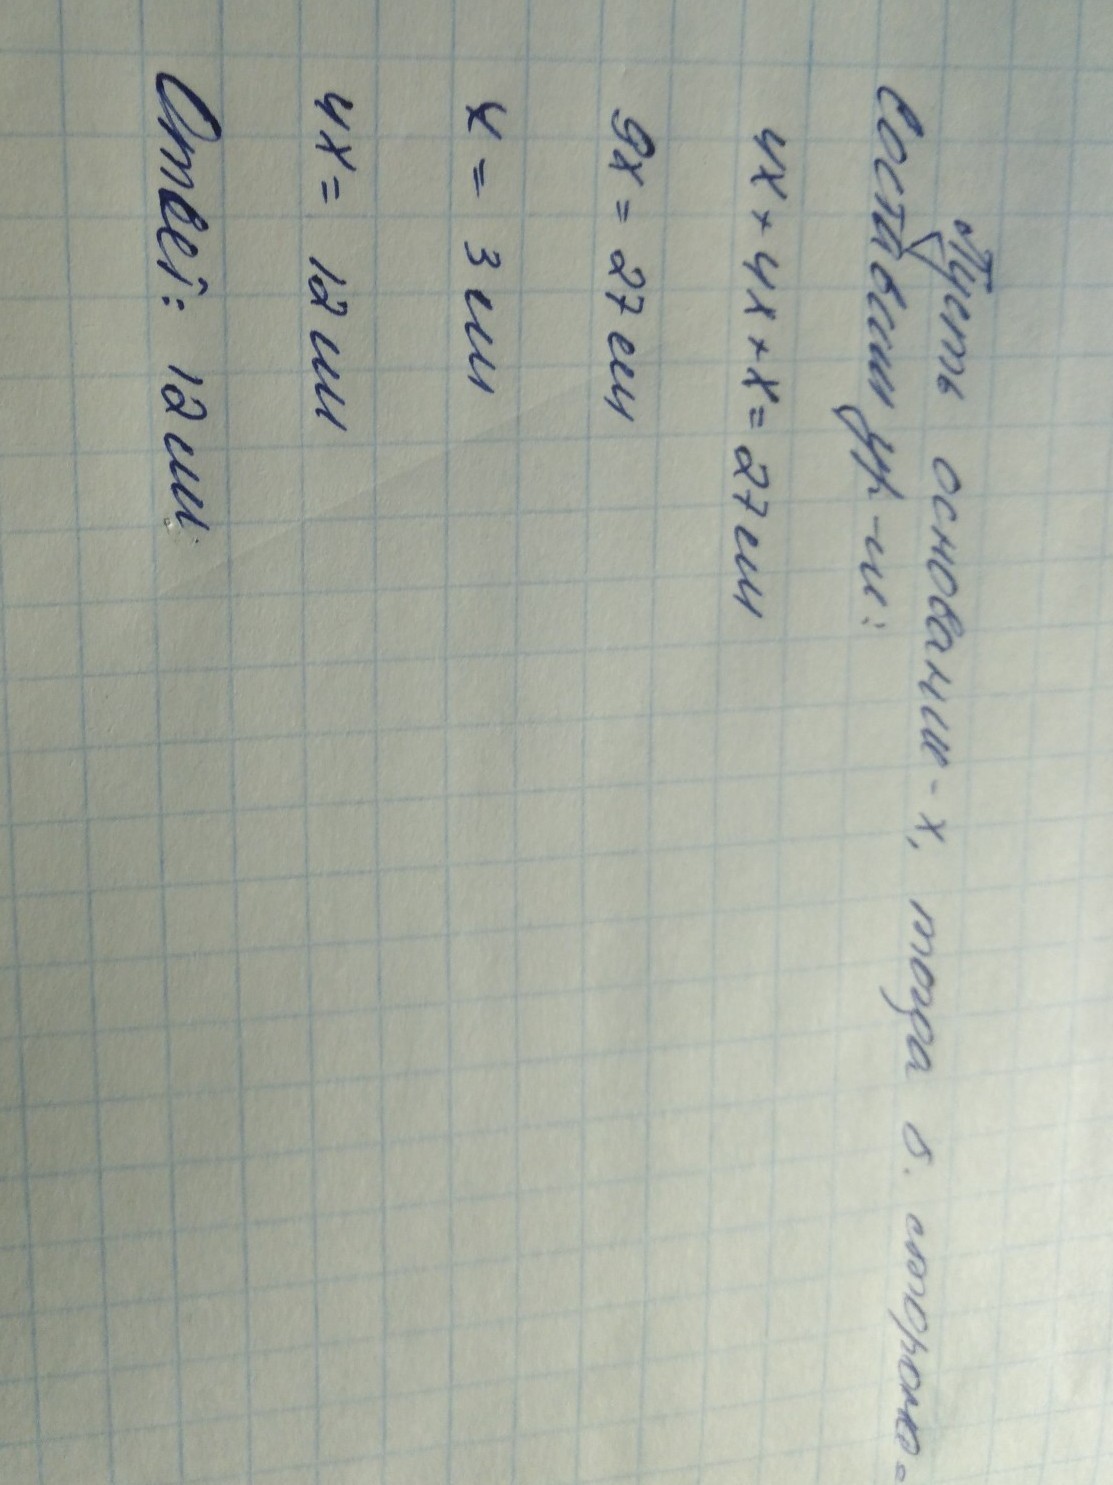 Пусть основании - х, тогда б. сторона =
Составим ур-ии:
4х + 4х + х = 27 см
9х = 27 см
х = 3 см
4х = 12 см
Ответ: 12 см